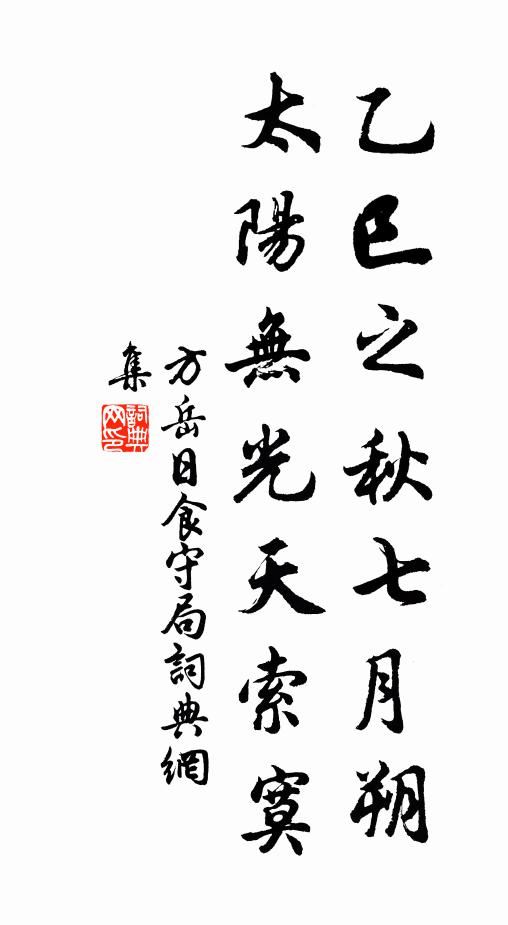 乙巳之秋七月朔
太陽無光天索寞
方岳日食守局詞典網
集
詞典
网印